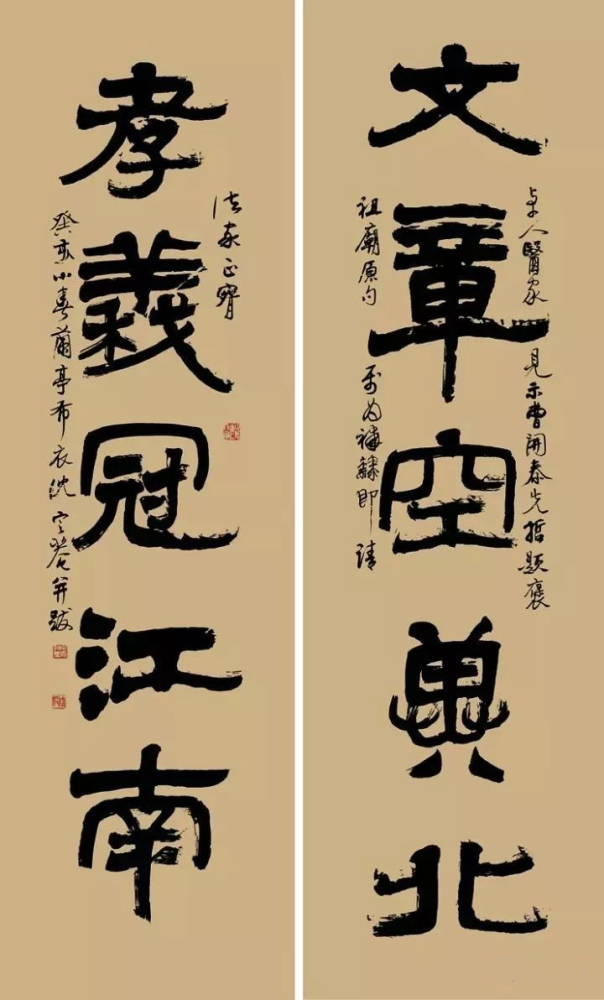 文章空冀北
卓人醫家見示曹開泰先哲題褒
祖廟原句為補録即請
孝義冠江南
法家正
癸亥小春蘭亭布衣沈定菴并跋